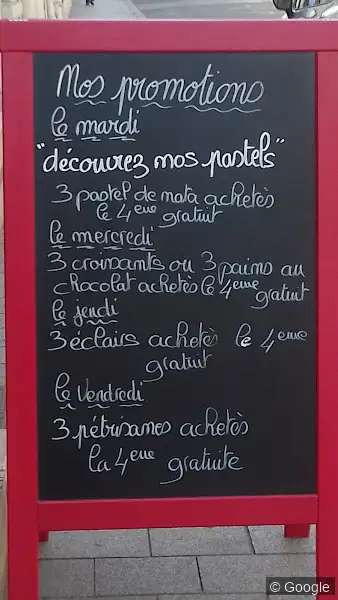 Nos promotions
le mardi
"découvrez nos pastels"
3 pastel de nata achetès
le 4eme gratuit
le mercredi
3 croissants ou 3 pains au
chocolat achetès le 4eme
gratuit
le jeudi
3 éclairs achetè le 4eme
gratuit
le Vendredi
3 pétrisanes achetès
la 4eme gratuite
© Google